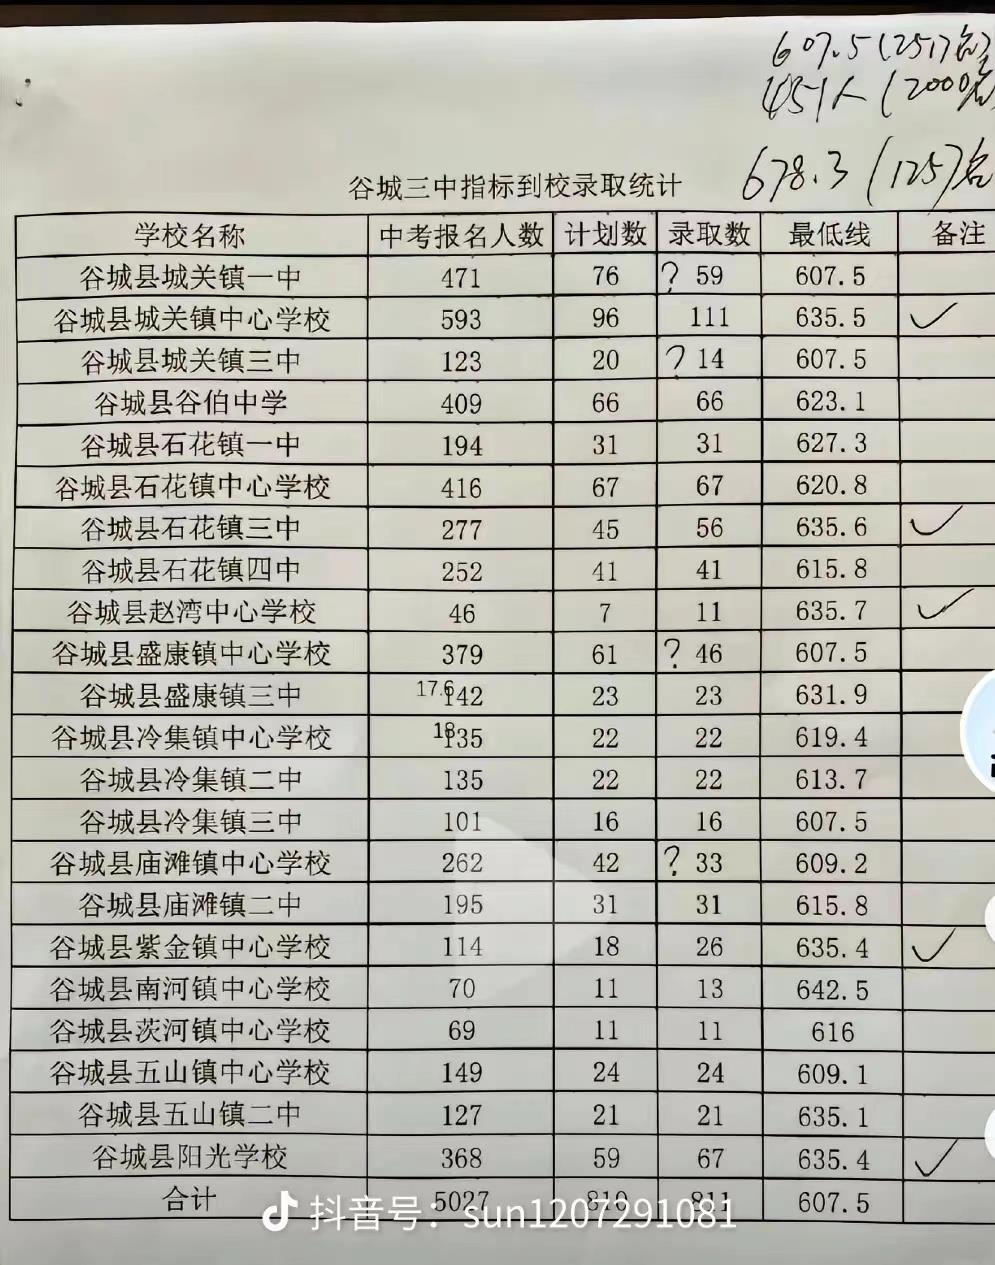 607.5(2517名)
451人(2000名
678.3(125)名
谷城三中指标到校录取统计
学校名称 中考报名人数 计划数 录取数 最低线 备注
谷城县城关镇一中 471 76 ? 59 607.5
谷城县城关镇中心学校 593 96 111 635.5 ✓
谷城县城关镇三中 123 20 ? 14 607.5
谷城县谷伯中学 409 66 66 623.1
谷城县石花镇一中 194 31 31 627.3
谷城县石花镇中心学校 416 67 67 620.8
谷城县石花镇三中 277 45 56 635.6 ✓
谷城县石花镇四中 252 41 41 615.8
谷城县赵湾中心学校 46 7 11 635.7 ✓
谷城县盛康镇中心学校 379 61 ? 46 607.5
谷城县盛康镇三中 17.6 142 23 23 631.9
谷城县冷集镇中心学校 18 135 22 22 619.4
谷城县冷集镇二中 135 22 22 613.7
谷城县冷集镇三中 101 16 16 607.5
谷城县庙滩镇中心学校 262 42 ? 33 609.2
谷城县庙滩镇二中 195 31 31 615.8
谷城县紫金镇中心学校 114 18 26 635.4 ✓
谷城县南河镇中心学校 70 11 13 642.5
谷城县茨河镇中心学校 69 11 11 616
谷城县五山镇中心学校 149 24 24 609.1
谷城县五山镇二中 127 21 21 635.1
谷城县阳光学校 368 59 67 635.4 ✓
合计 5027 810 811 607.5
抖音号：sun1207291081